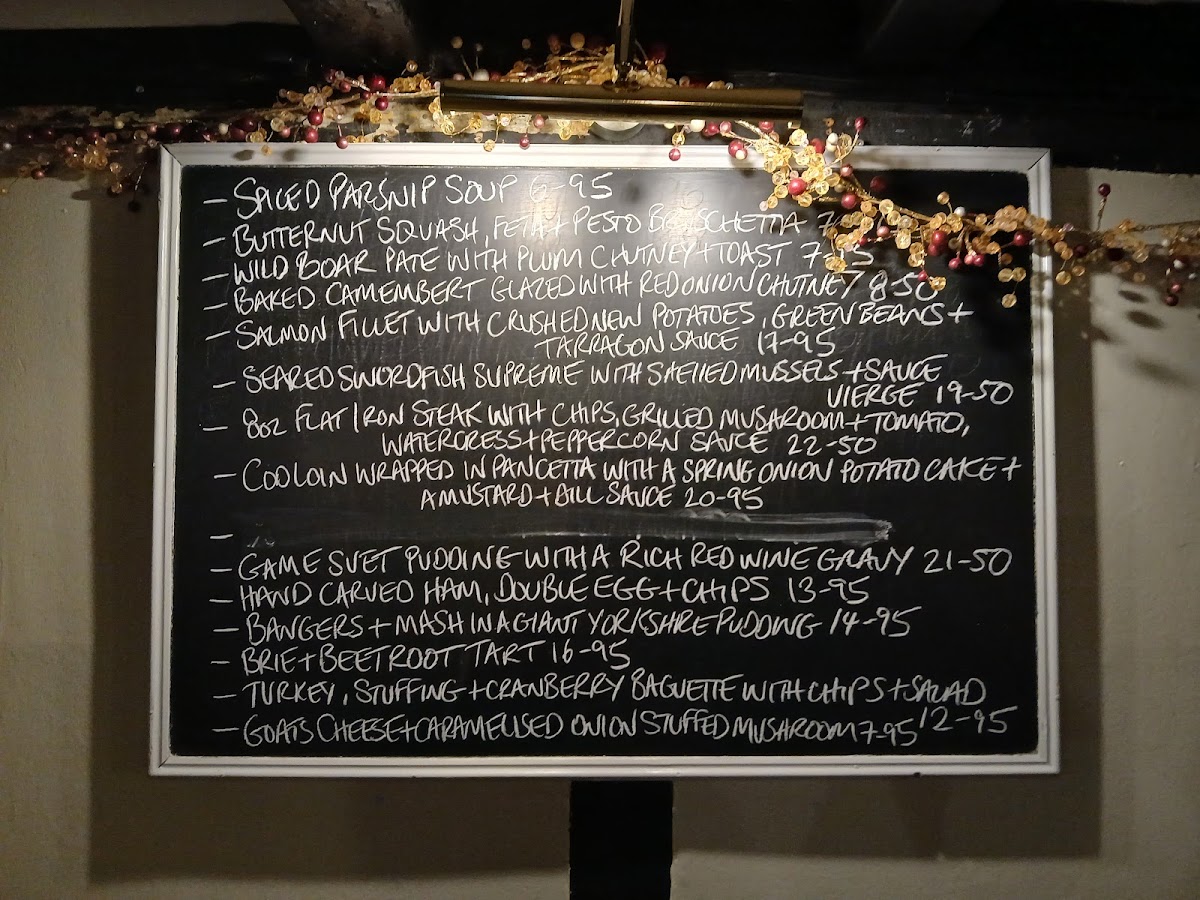 - SPICED PARSNIP SOUP 6-95
- BUTTERNUT SQUASH, FETA + PESTO BRUSCHETTA 7
- WILD BOAR PATE WITH PLUM CHUTNEY + TOAST 7-95
- BAKED CAMEMBERT GLAZED WITH RED ONION CHUTNEY 8-50
- SALMON FILLET WITH CRUSHED NEW POTATOES, GREEN BEANS +
TARRAGON SAUCE 17-95
- SEARED SWORDFISH SUPREME WITH SHELLED MUSSELS + SAUCE
VIERGE 19-50
- 8oz FLAT IRON STEAK WITH CHIPS, GRILLED MUSHROOM + TOMATO,
WATERCRESS + PEPPERCORN SAUCE 22-50
- COD LOIN WRAPPED IN PANCETTA WITH A SPRING ONION POTATO CAKE +
A MUSTARD + DILL SAUCE 20-95
-
- GAME SUET PUDDING WITH A RICH RED WINE GRAVY 21-50
- HAND CARVED HAM, DOUBLE EGG + CHIPS 13-95
- BANGERS + MASH IN A GIANT YORKSHIRE PUDDING 14-95
- BRIE + BEETROOT TART 16-95
- TURKEY, STUFFING + CRANBERRY BAGUETTE WITH CHIPS + SALAD
12-95
- GOATS CHEESE + CARAMELISED ONION STUFFED MUSHROOM 7-95